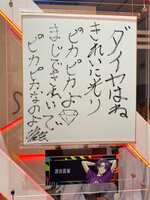 ダイヤはね
きれいに光り
ピカピカよ
まじできれいで
ピカピカなのよ